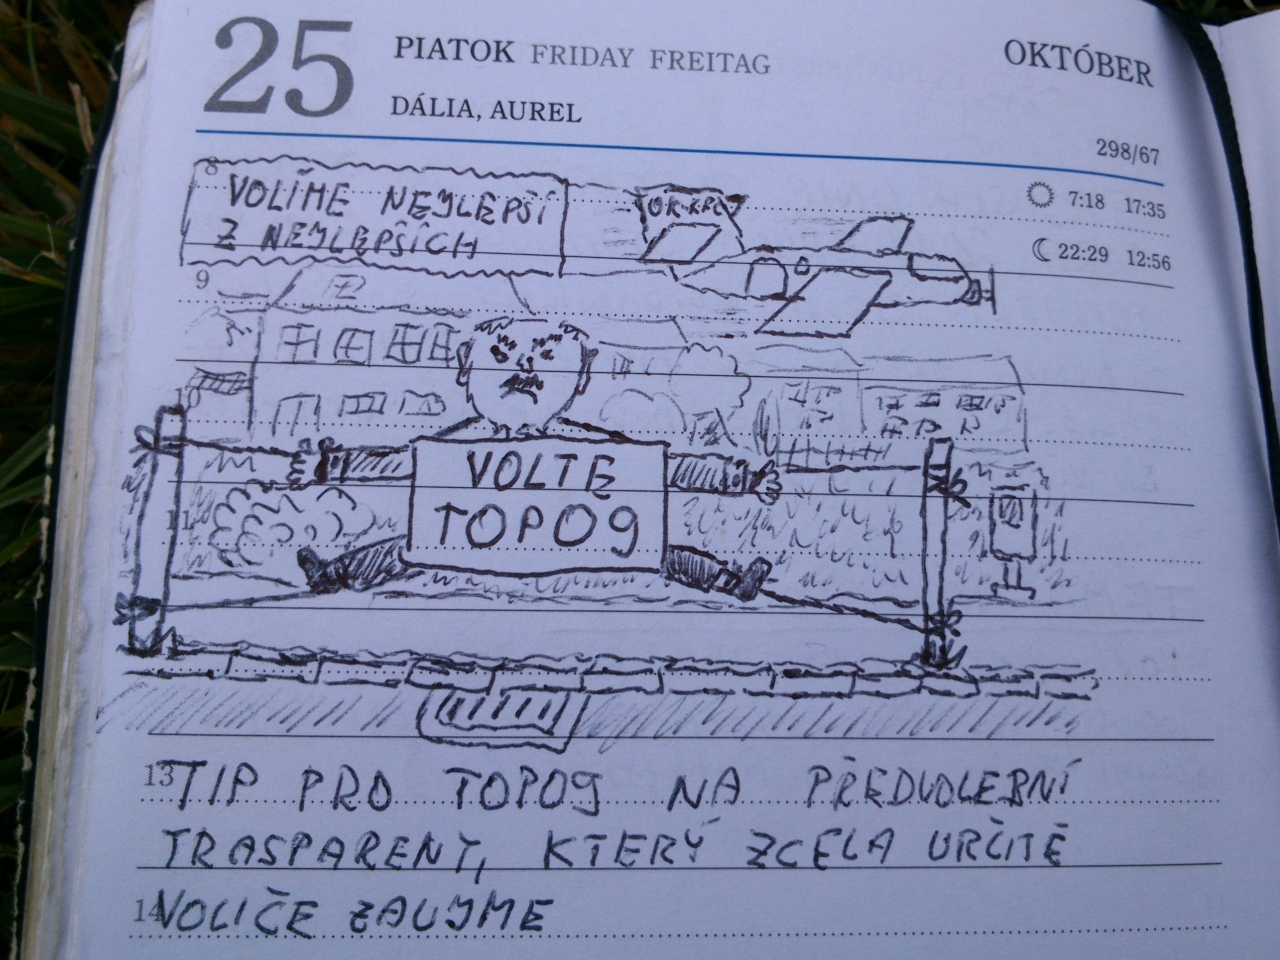 25 PIATOK FRIDAY FREITAG OKTÓBER
DÁLIA, AUREL
298/67
7:18 17:35
22:29 12:56
8
VOLÍME NEJLEPŠÍ
Z NEJLEPŠÍCH
9
10
VOLTE
TOPO9
11
13 TIP PRO TOPO9 NA PŘEDVOLEBNÍ
TRASPARENT, KTERÝ ZCELA URČITĚ
14 VOLIČE ZAUJME